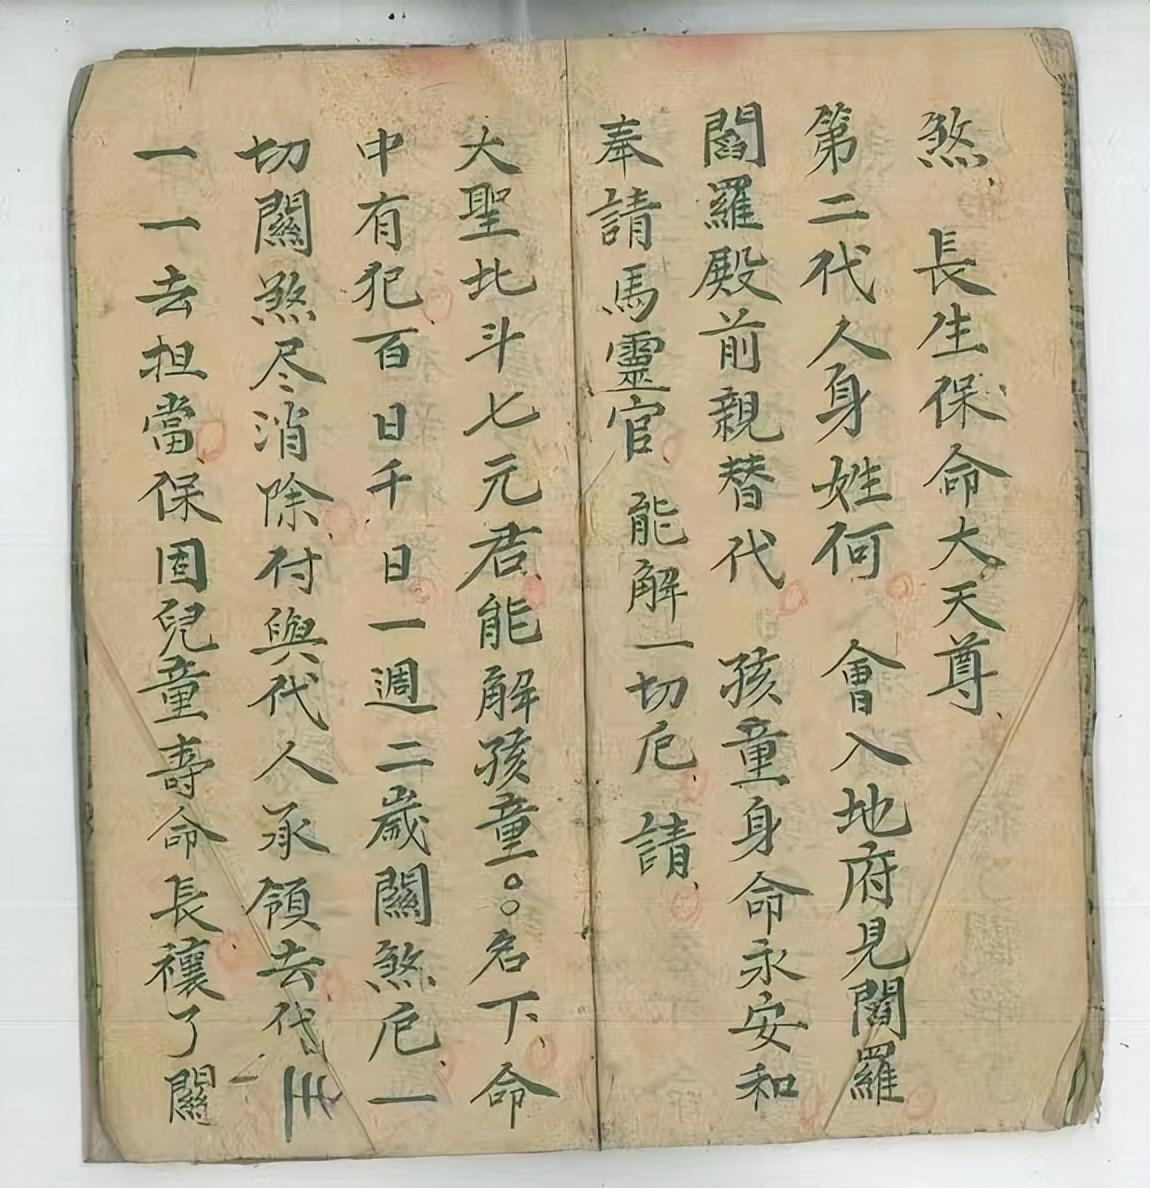 煞 長生保命大天尊
第二代人身姓何 會入地府見閻羅
閻羅殿前親替代 孩童身命永安和
奉請馬靈官 能解一切厄 請
大聖北斗七元君能解孩童○○名下命
中有犯百日千日一週二歲關煞厄一
切關煞尽消除付與代人承領去代
一一去担當保固兒童壽命長禳了關